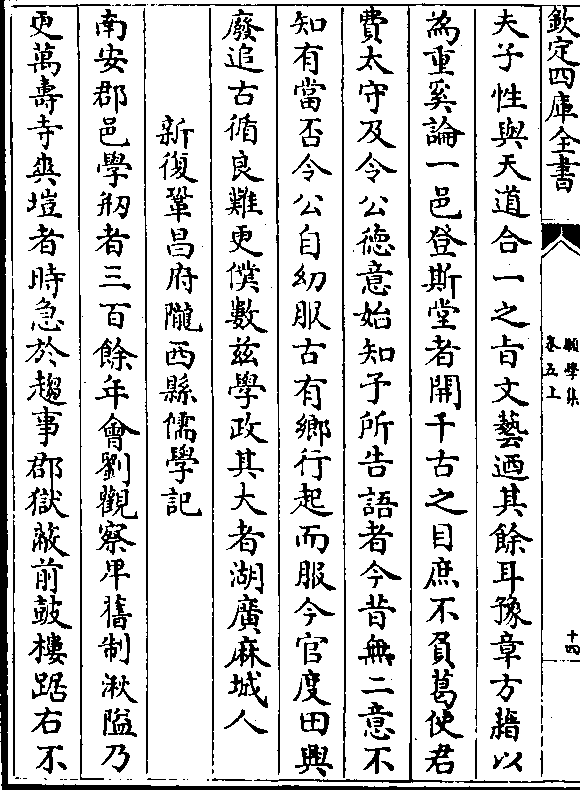 欽定四庫全書
願學集
卷五上
十四
夫子性與天道合一之㫖文藝迺其餘耳豫章方藉以
為重奚論一邑登斯堂者開千古之目庶不負葛使君
費太守及令公徳意始知予所告語者今昔無二意不
知有當否令公自幼服古有鄉行起而服今官度田興
廢追古循良難更僕數兹學政其大者湖廣麻城人
新復鞏昌府隴西縣儒學記
南安郡邑學剏者三百餘年㑹劉觀察卑舊制湫隘乃
更萬壽寺爽塏者時急於趨事郡獄蔽前鼓樓踞右不